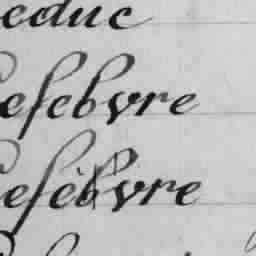 Leduc
Lefebvre
Lefèbvre